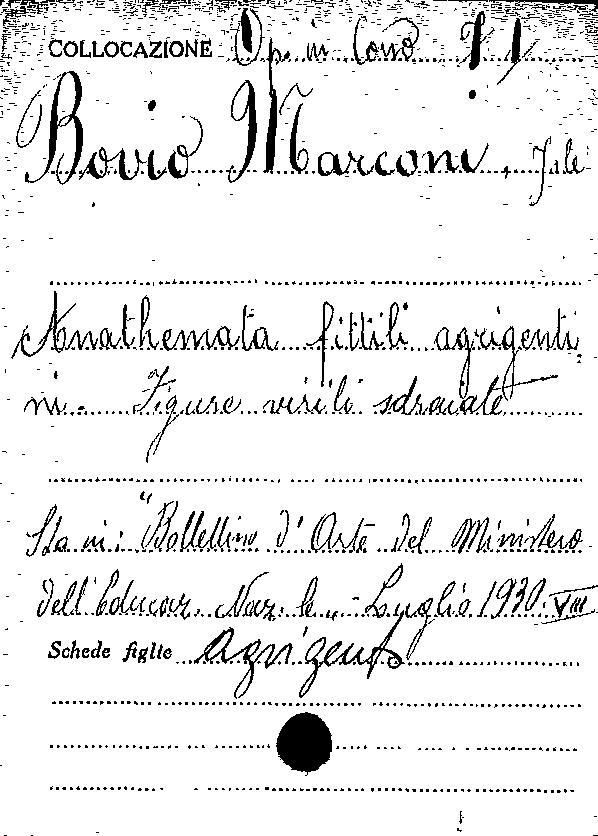 COLLOCAZIONE Op. in Cons
Bovio Marconi, Jole
Anathemata fittili agrigenti=
ni. Figure virili sdraiate
Sta in: "Bollettino d'Arte del Ministero
dell'Educaz. Naz.le" - Luglio 1930. VIII
Schede figlie Agrigento